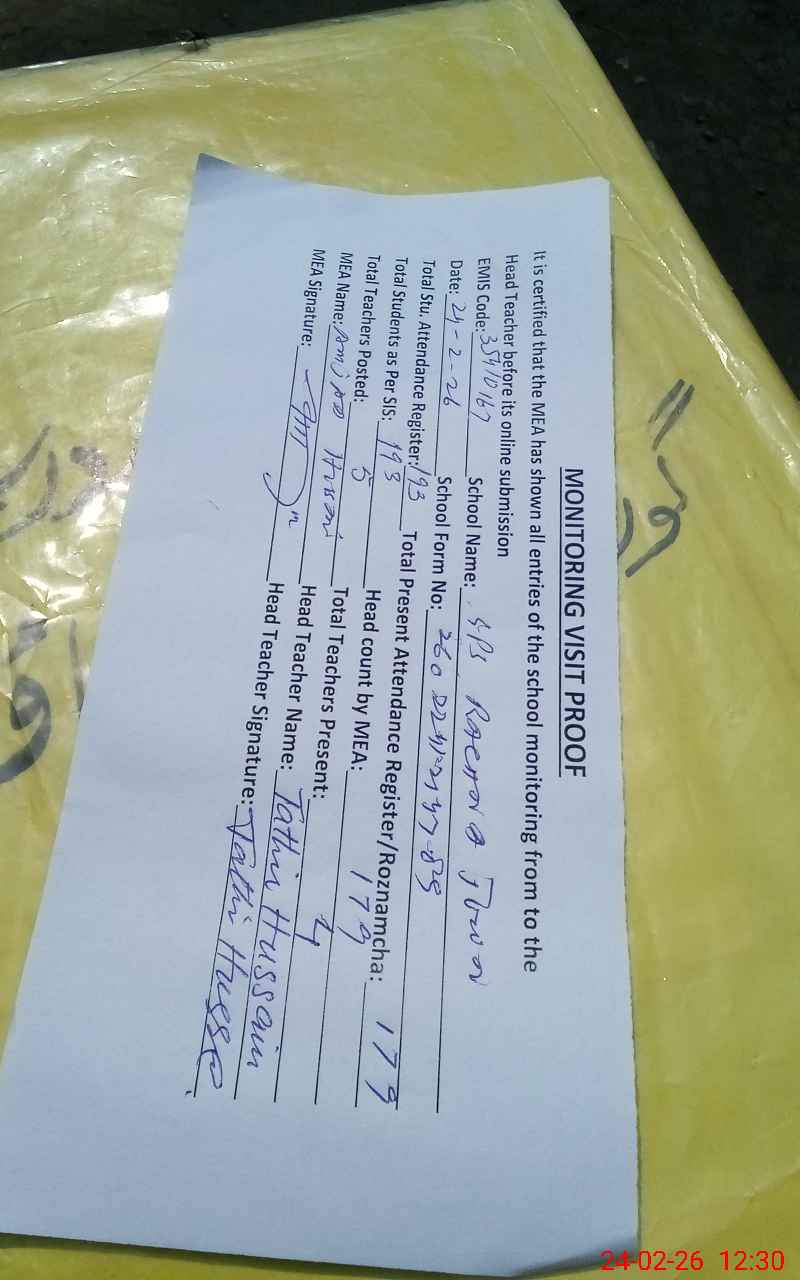 MONITORING VISIT PROOF
It is certified that the MEA has shown all entries of the school monitoring from to the
Head Teacher before its online submission
EMIS Code: 35410167 School Name: GPS
Date: 24-2-26 School Form No:
Total Stu. Attendance Register: 193 Total Present Attendance Register/Roznamcha: 179
Total Students as Per SIS: 193 Head count by MEA: 179
Total Teachers Posted: 5 Total Teachers Present: 4
MEA Name: Amjad Head Teacher Name: Tathir Hussain
MEA Signature: Head Teacher Signature: Tathir
24-02-26 12:30